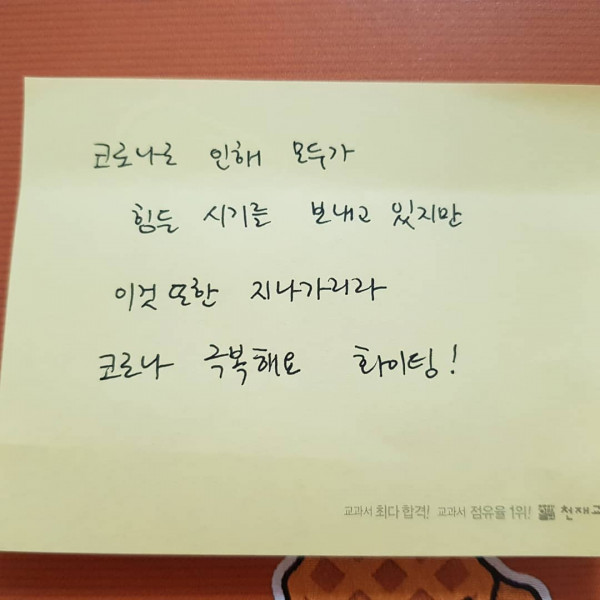 코로나로 인해 모두가
힘든 시기를 보내고 있지만
이것 또한 지나가리라
코로나 극복해요 화이팅!
교과서 최다 합격! 교과서 점유율 1위! 천재교